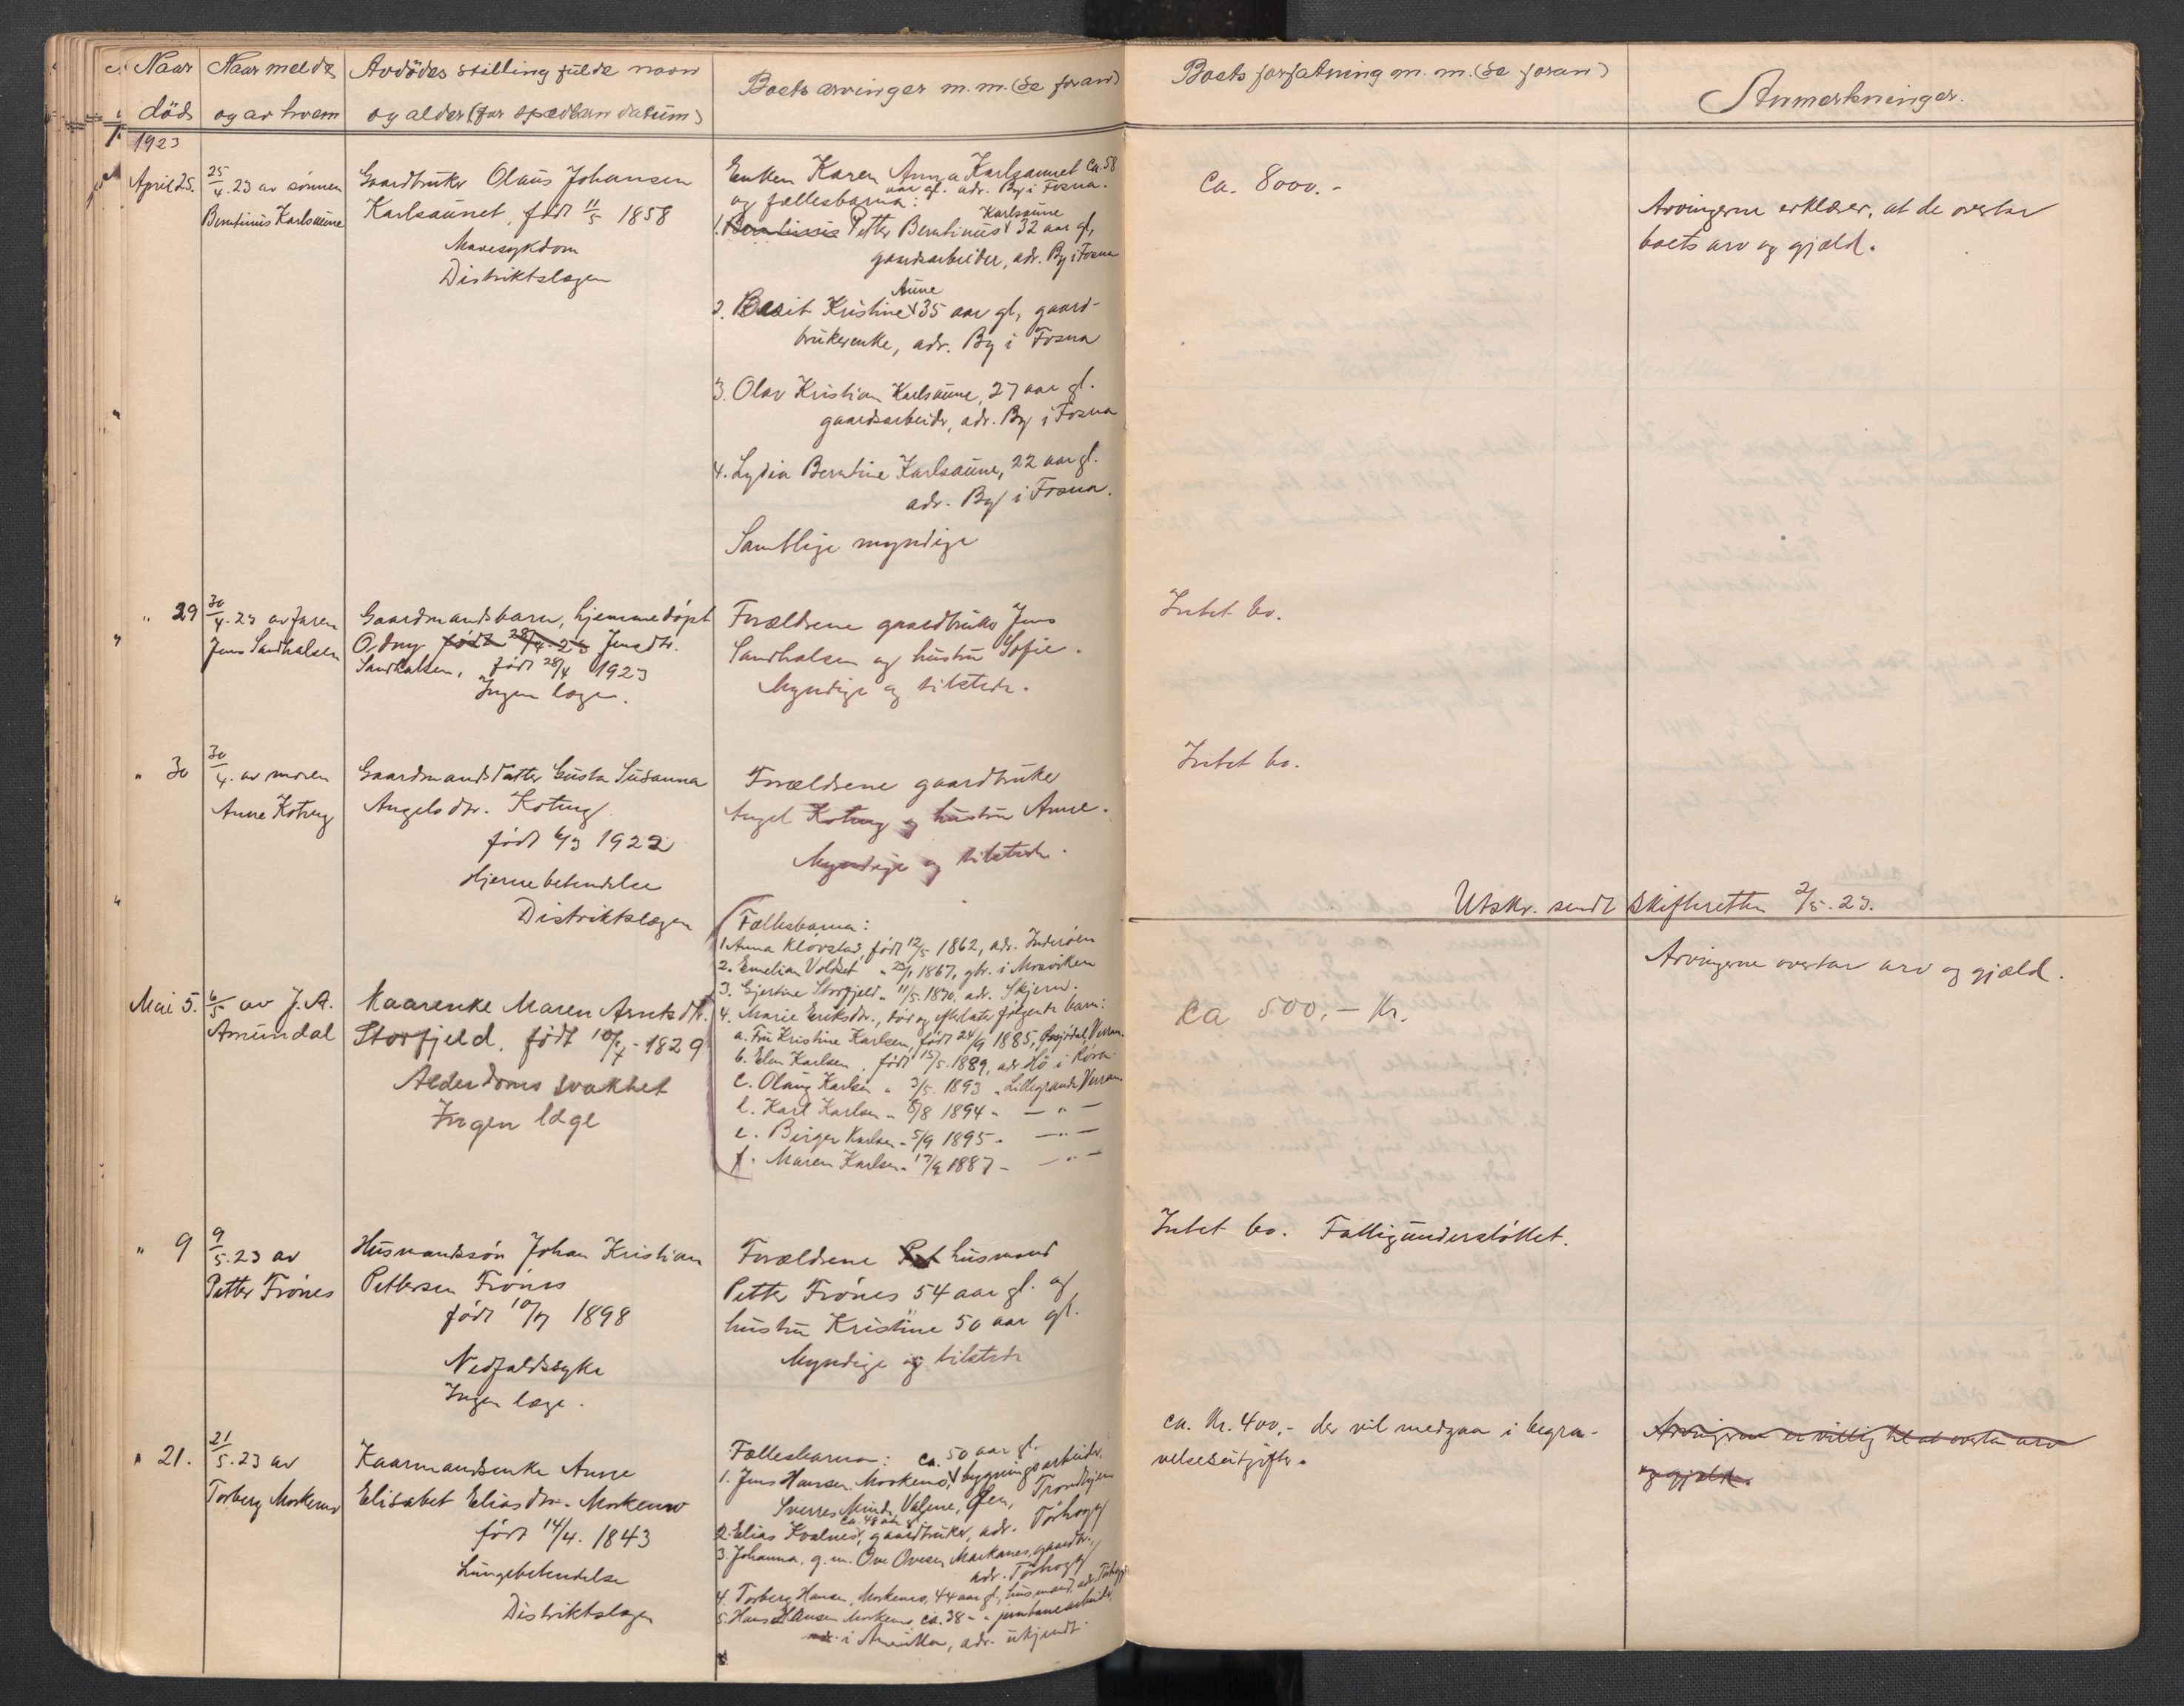 Naar død
Naar meldt og av hvem
Avdødes stilling fulde navn og alder (for spædbarn datum)
Boets arvinger m.m. (se foran)
Boets forfatning m.m. (se foran)
Anmerkninger.
1923
April 25.
25/4.23 av sønnen
Berntinus Karlsaune
Gaardbruker Olaus Johansen
Karlsaunet, født 11/5 1858
Mavesykdom
Distriktslægen
Enken Karen Anna Karlsaunet ca. 58
aar gl. adr. By i Fosna.
og fællesbarna:
1. Berntinus Petter Berntinus Karlsaune 32 aar gl,
gaardsarbeider, adr. By i Fosna
2. Berit Kristine Aune 35 aar gl, gaard-
brukerenke, adr. By i Fosna
3. Olav Kristian Karlsaune, 27 aar gl.
gaardsarbeider, adr. By i Fosna
4. Lydia Berntine Karlsaune, 22 aar gl.
adr. By i Fosna.
Samtlige myndige
Ca. 8000.-
Arvingerne erklærer, at de overtar
boets arv og gjæld.
" 29
30/4.23 av faren
Jens Sandhalsen
Gaardmandsbarn, hjemmedøpt
Odny født 28/4.23 Jensdtr.
Sandhalsen, født 28/4 1923
Ingen læge.
Forældrene gaardbruker Jens
Sandhalsen og hustru Sofie.
Myndige og tilstede.
Intet bo.
" 30
30/4. av moren
Anne Koteng
Gaardmandsdatter Gusta Susanna
Angelsdtr. Koteng
født 6/3 1922
Hjernebetendelse
Distriktslægen
Forældrene gaardbruker
Angel Koteng og hustru Anne.
Myndige og tilstede.
Intet bo.
Utskr. sendt skifteretten 2/5.23.
Mai 5.
6/5 av J. A.
Amundal
Kaarenke Maren Arntsdtr.
Storfjeld. født 10/7-1829
Alderdoms svakhet
Ingen læge
Fællesbarna:
1. Anna Kløvstad, født 12/5 1862, adr. Inderøen
2. Emelian Voldset " 25/1 1867, gbr. i Mosviken
3. Gjertine Storfjeld " 11/5.1870, adr. Skjørn.
4. Marie Eriksdtr., død og efterlater følgende barn:
a. Fru Kristine Karlsen, født 24/9 1885, Verran.
b. Elen Karlsen, født 15/5.1889, adr. Hø i Røra.
c. Olaug Karlsen " 3/5. 1893 " Lillegrande Verran
d. Karl Karlsen " 8/8 1894 " — " —
e. Birger Karlsen " 5/9 1895 " — " —
f. Maren Karlsen " 17/9 1887 - — " —
Ca 500,- Kr.
Arvingerne overtar arv og gjæld.
" 9
9/5.23 av
Petter Frønes
Husmandssøn Johan Kristian
Pettersen Frønes
født 10/7 1898
Nedfaldssyke
Ingen læge.
Forældrene Pet husmand
Petter Frønes 54 aar gl. og
hustru Kristine 50 aar gl.
Myndige og tilstede
Intet bo. Fattigunderstøttet.
" 21.
21/5.23 av
Torberg Morkemo
Kaarmandsenke Anne
Elisabet Eliasdtr. Morkemo
født 14/4. 1843
Lungebetendelse
Distriktslægen
Fællesbarna:
1. Jens Hansen Morkemo, ca. 50 aar gl. bygningsarbeider,
Sverres Minde, Valene, Trondhjem
2. Elias Kvalnes, ca. 48 aar gl. gaardbruker, adr. Tørhogg
3. Johanna, g.m. Ove Ovesen Markanes, gaardbr.
adr. Tørhogg
4. Torberg Hansen Morkemo, 44 aar gl, husmand, adr. Tørhogg
5. Hans Hansen Morkemo ca. 38 " " jernbanearbeider,
i Amerika, adr. ukjendt.
ca. Kr. 400,- der vil medgaa i begra-
velsesutgifter.
Arvingerne er villig til at overta arv
og gjæld.